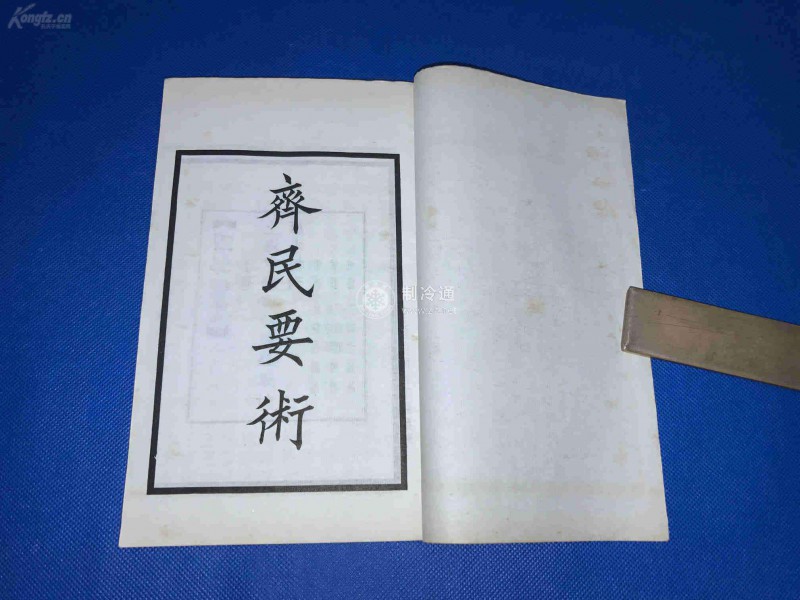 Kongfz.cn
齊民要術
制冷通